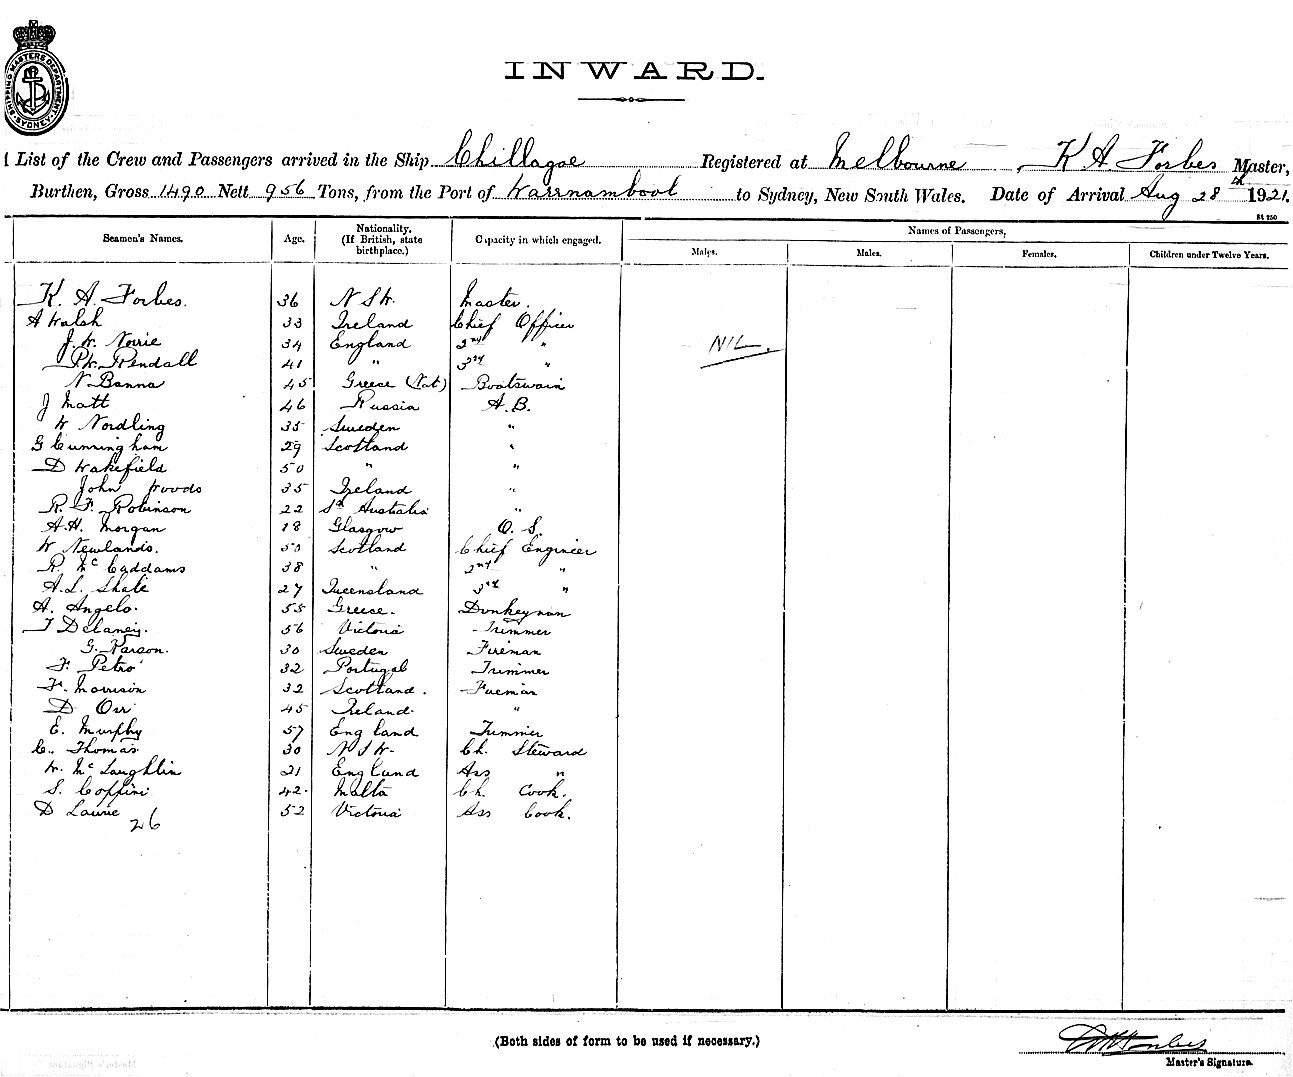 SHIPPING MASTERS DEPARTMENT. SYDNEY.
INWARD.
List of the Crew and Passengers arrived in the Ship Chillagoe Registered at Melbourne, K A Forbes Master,
Burthen, Gross 1490 Nett 956 Tons, from the Port of Warrnambool to Sydney, New South Wales. Date of Arrival Aug 28th 1921.
St 750
Seamen's Names. Age. Nationality. (If British, state birthplace.) Capacity in which engaged. Names of Passengers,
Males. Males. Females. Children under Twelve Years.
K. A. Forbes. 36 N S W. Master.
A Walsh 33 Ireland Chief Officer
J. W. Norrie 34 England 2nd "
NIL.
P.W. Rendall 41 " 3rd "
N. Banna 45 Greece (Nat) Boatswain
J Matt 46 Russia A.B.
W Nordling 35 Sweden "
G Cunningham 29 Scotland "
D Wakefield 50 " "
John Woods 35 Ireland "
R. F. Robinson 22 Sth Australia "
A.H. Morgan 18 Glasgow O. S.
W Newlands. 50 Scotland Chief Engineer
R. Mc 38 " 2nd "
A.L. 27 Queensland 3rd "
A. Angelo. 55 Greece. Donkeyman
J Delaney. 56 Victoria Trimmer
G. 30 Sweden Fireman
F. Petro 32 Portugal Trimmer
F. Morrison 32 Scotland. Fireman
D Orr 45 Ireland. "
E. Murphy 57 England Trimmer
C. Thomas 30 N S W. Ch. Steward
W. McLaughlin 21 England Ass "
S. Coppini 42. Malta Ch. Cook.
D Laurie 52 Victoria Ass Cook.
26
(Both sides of form to be used if necessary.)
Master's Signature.